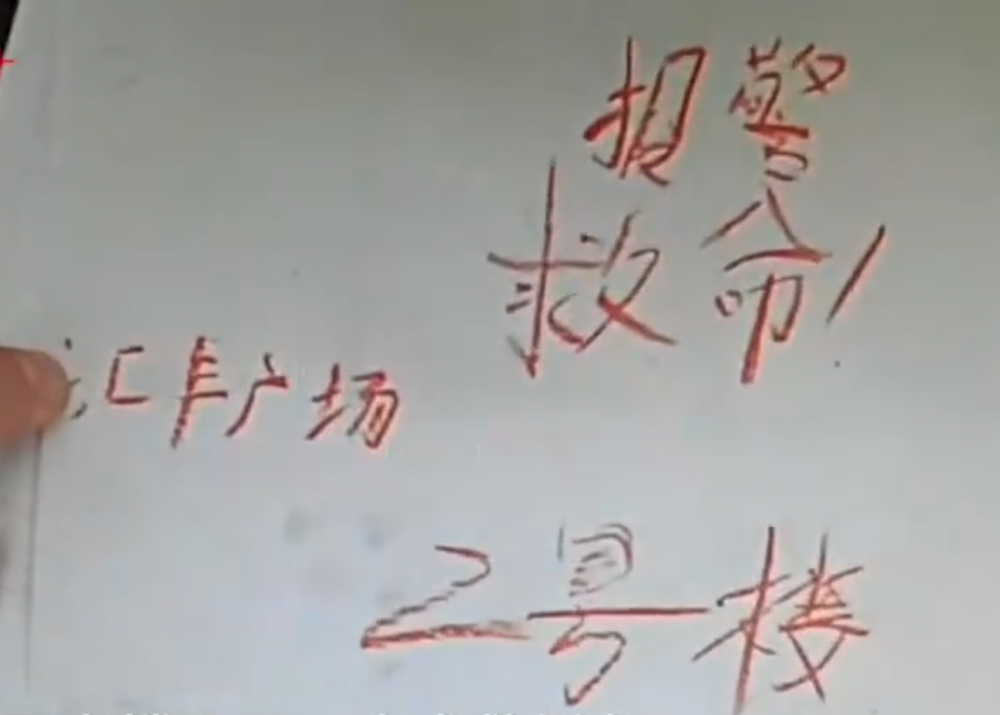 报警
救命!
汇丰广场
2号楼